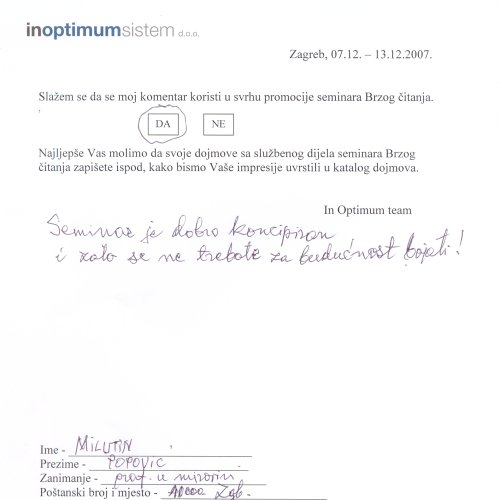 inoptimumsistem d.o.o.
Zagreb, 07.12. – 13.12.2007.
Slažem se da se moj komentar koristi u svrhu promocije seminara Brzog čitanja.
DA NE
Najljepše Vas molimo da svoje dojmove sa službenog dijela seminara Brzog
čitanja zapišete ispod, kako bismo Vaše impresije uvrstili u katalog dojmova.
In Optimum team
Seminar je dobro koncipiran
i zato se ne trebate za budućnost bojati!
Ime - MILUTIN
Prezime - POPOVIC
Zanimanje - prof. u mirovini
Poštanski broj i mjesto - 10000 Zgb.